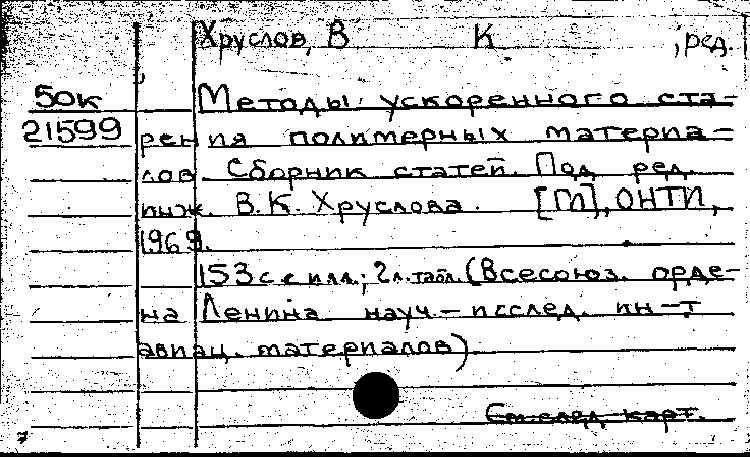 Хруслов, В К , ред.
50к Методы ускоренного ста-
21599 рения полимерных материа-
лов. Сборник статей. Под ред.
инж. В.К. Хруслова. [М], ОНТИ,
1969.
153 с с илл.; 2 л. табл. (Всесоюз. орде-
на Ленина науч.-исслед. ин-т
авиац. материалов).
См. след. карт.
7